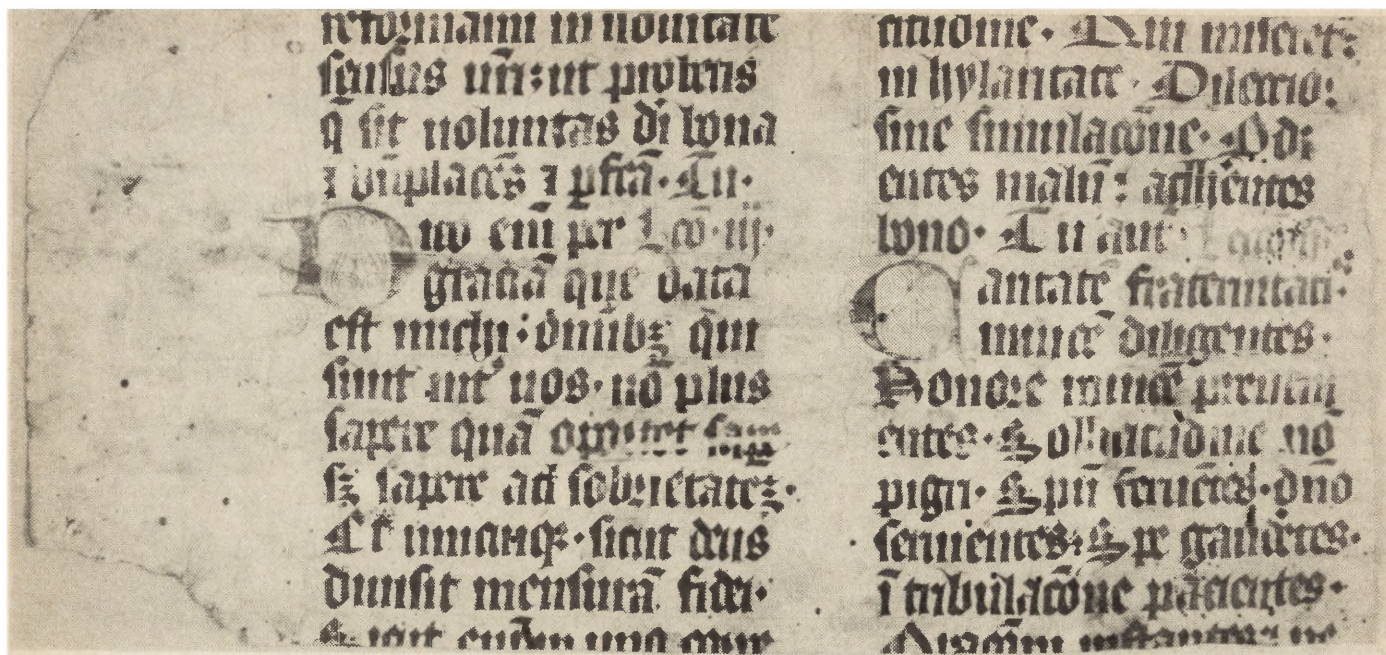 reformami in nouitate
sensus ur̄i: ut probetis
q̄ sit uoluntas di bona
⁊ bn̄placēs ⁊ pfcā. Tu.
ico eni per Lc̄o. iij.
graciā que data
est michi: om̄ibꝫ qui
sunt int̄ uos. nō plus
sapere quā oportet sape
sꝫ sapere ad sobrietatēꝫ.
Et unicuiqꝫ. sicut deus
diuisit mensurā fidei.
Sicut enim in uno corpe
citudine. Qui miseret᷑:
in hylaritate. Dilectio:
sine simulacōne. Odi
entes malū: adherentes
bono. Tu aut̄
aritatē fraternitatis.
inuicē diligentes.
Honore inuicē preueni
entes. Sollicitudine nō
pigri. Spū feruētes. dn̄o
seruientes: Spe gaudētes.
ī tribulacōne pacientes.
Oracōni instantes: ne